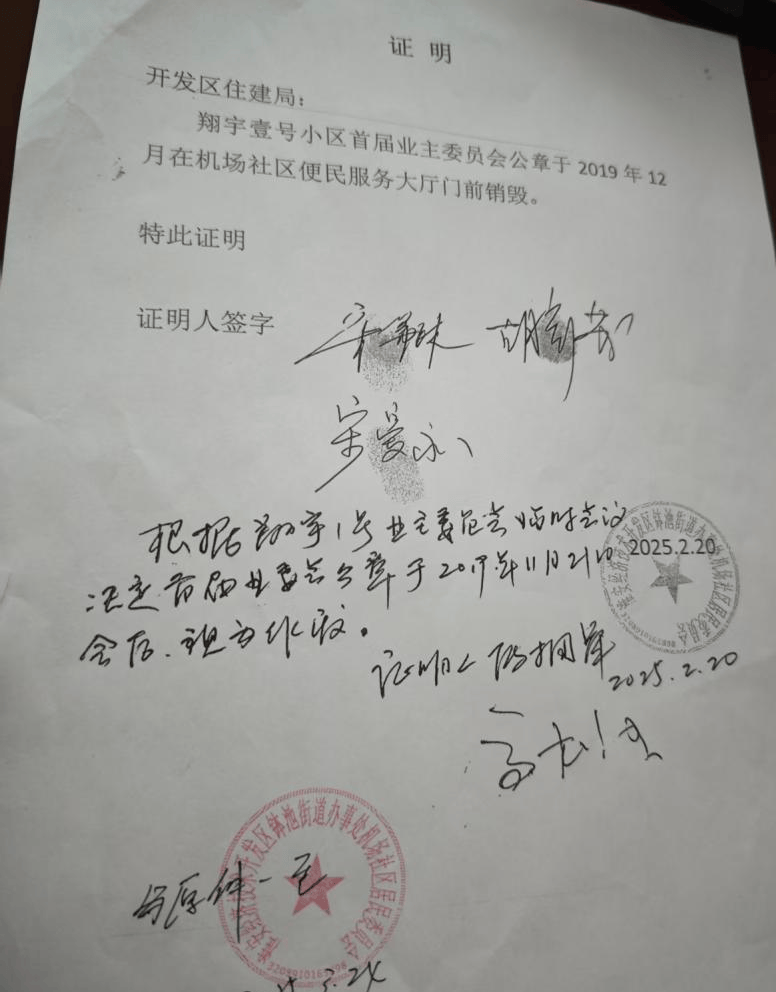 证 明
开发区住建局：
翔宇壹号小区首届业主委员会公章于 2019 年 12
月在机场社区便民服务大厅门前销毁。
特此证明
证明人签字
根据翔宇1号业主委员会临时会议
2025.2.20
决定首届业委会公章于2019年11月21日
会后、视为作废。
证明人
2025.2.20
淮安经济技术开发区钵池街道办事处机场社区居民委员会
与原件一致
淮安经济技术开发区钵池街道办事处机场社区居民委员会